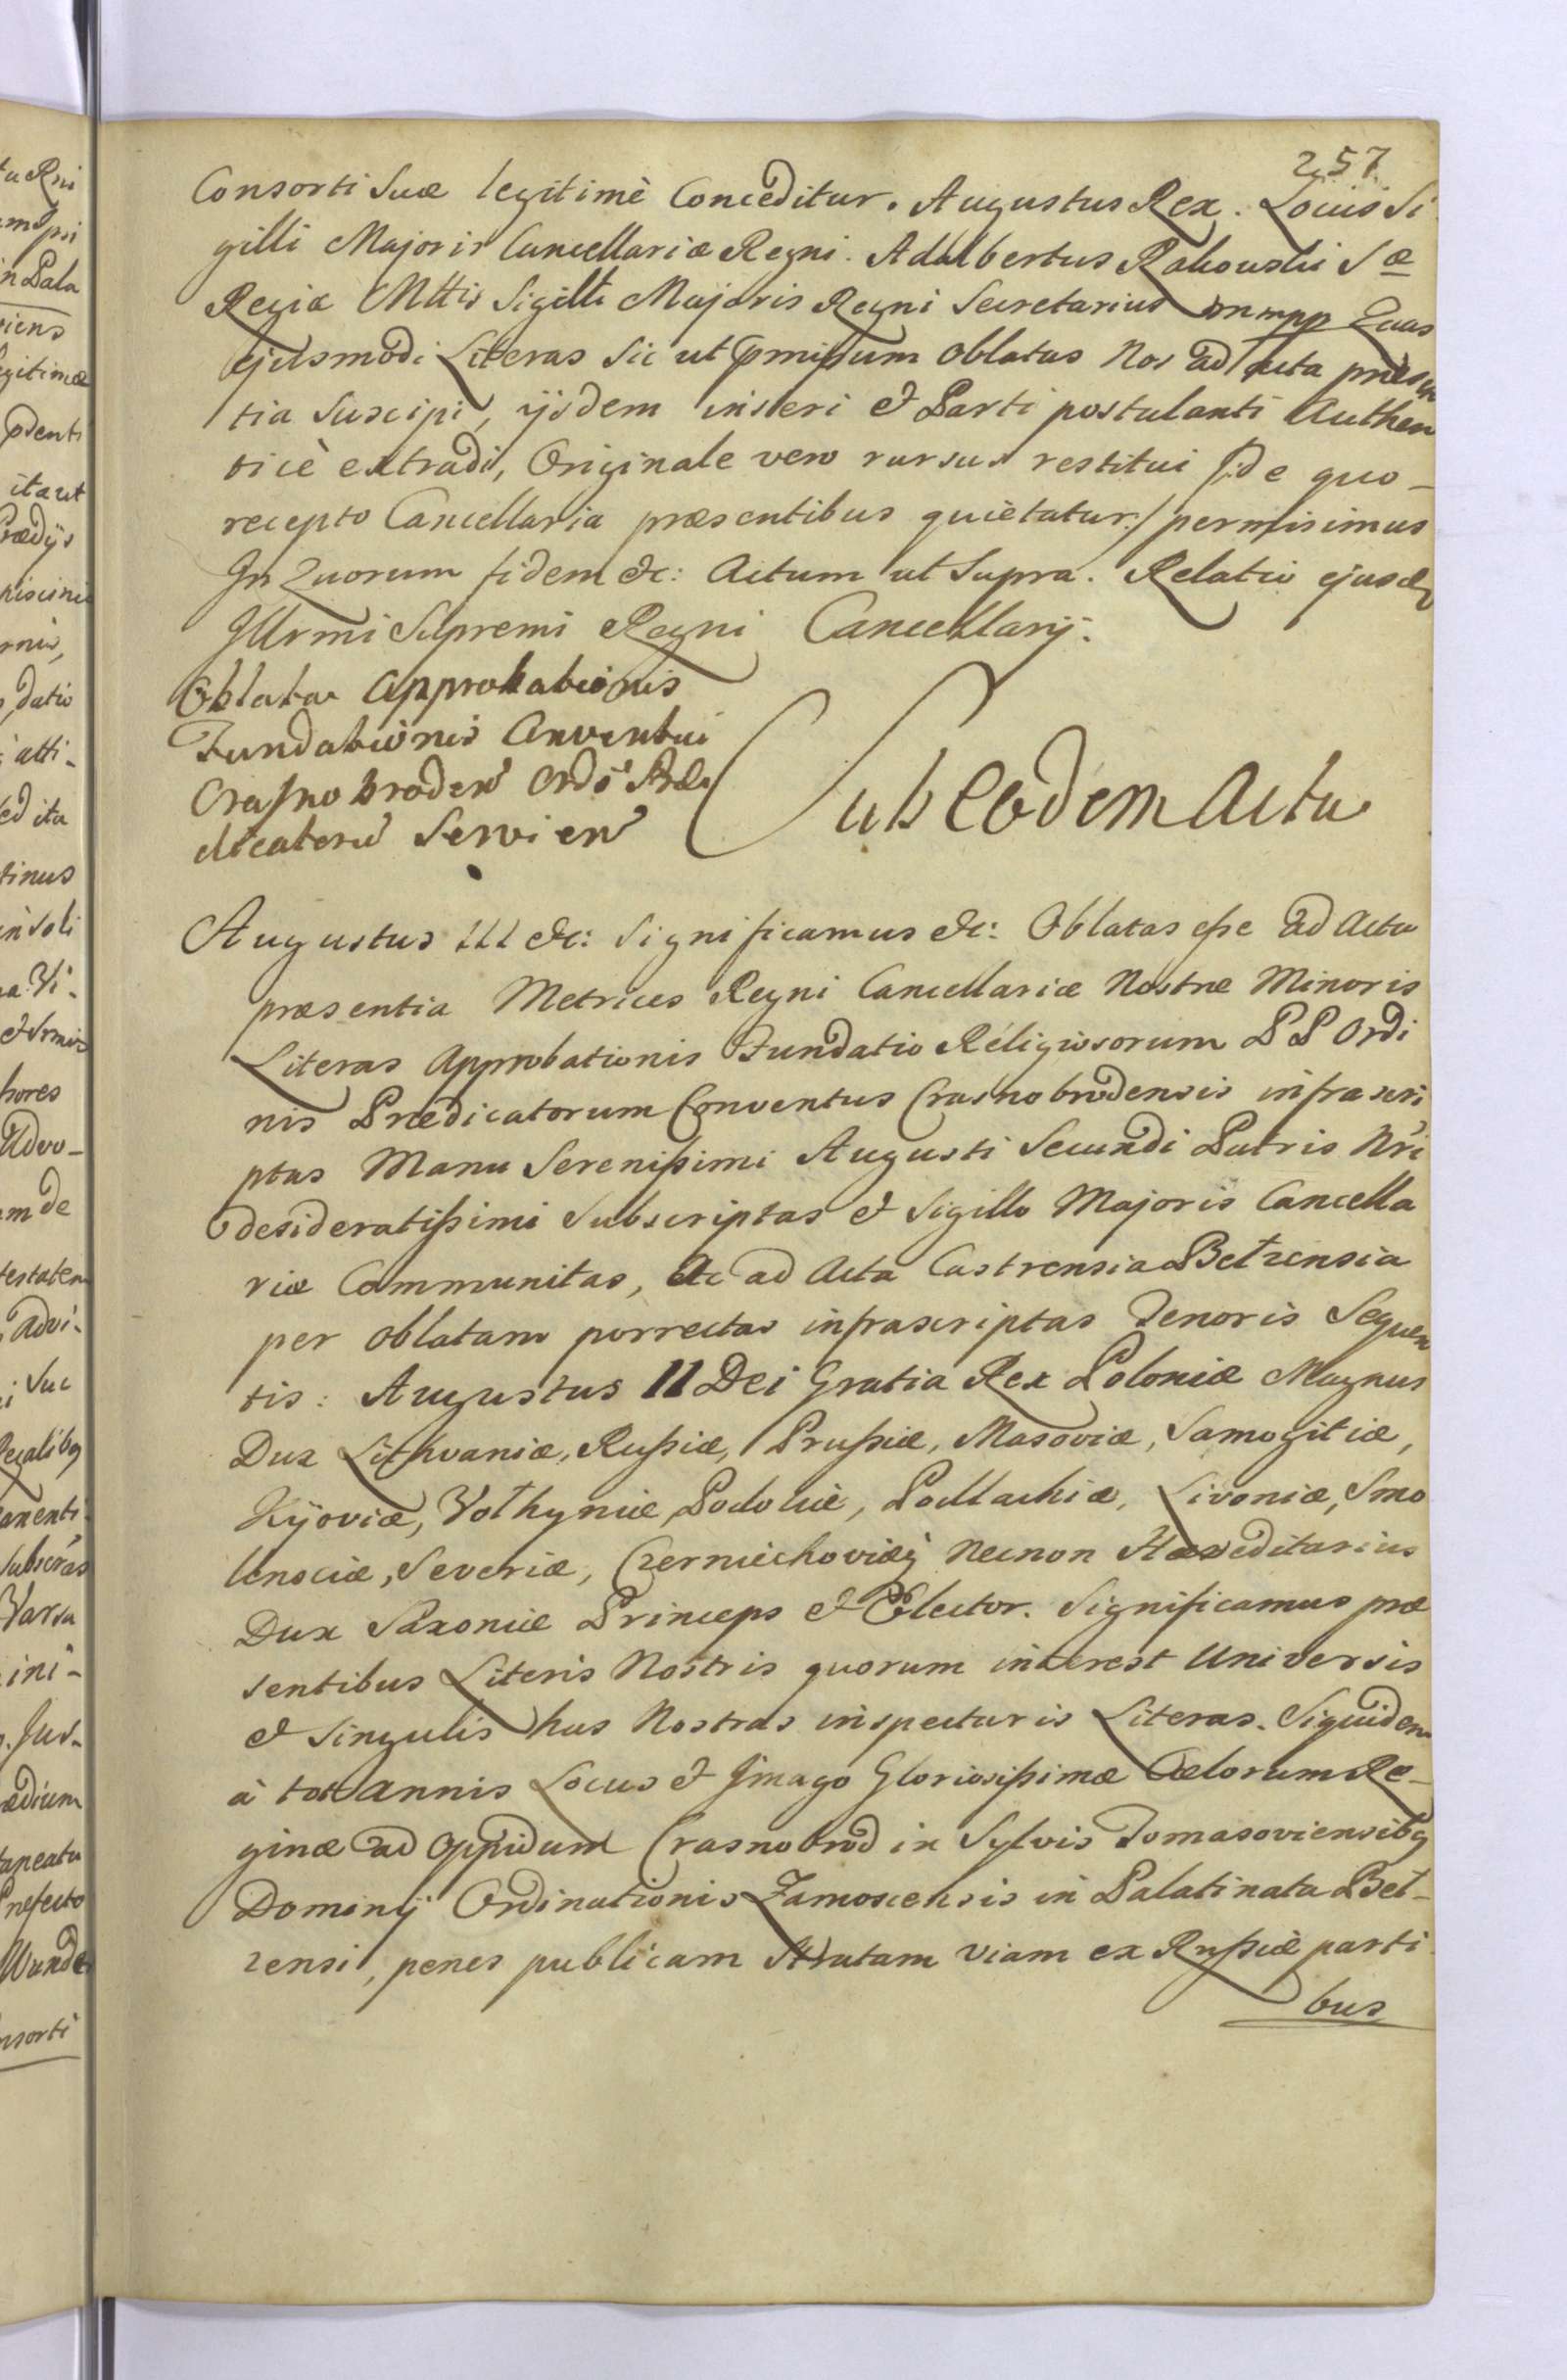 257
Consorti Suæ legitimè Conceditur. Augustus Rex. Locus Si
gilli Majoris Cancellariæ Regni. Adalbertus Rakowski Sæ
Regiæ Mttis Sigilli Majoris Regni Secretarius mpp Quas
ejusmodi Literas sic ut pmissum oblatas Nos ad Acta præsen
tia Suscipi, ijsdem inseri & Parti postulanti Authen
ticè extradi, Originale vero rursus restitui /:de quo
recepto Cancellaria præsentibus quietatur:/ permisimus
In Quorum fidem &c: Actum ut Supra. Relatio ejusdem
Illrmi Supremi Regni Cancellarij.
Oblata Approbationis
Fundationis Conventui
Crasnobroden Ordis Præ
dicatorū Servien
Sub Eodem Actu
Augustus III &c: Significamus &c: Oblatas esse ad Acta
præsentia Metrices Regni Cancellariæ Nostræ Minoris
Literas Approbationis Fundatio Religiosorum PP Ordi
nis Prædicatorum Conventus Crasnobrodensis infrascri
ptas Manu Serenissimi Augusti Secundi Patris Nri
desideratissimi Subscriptas & Sigillo Majoris Cancella
riæ Communitas, Ac ad Acta Castrensia Bełzensia
per Oblatam porrectas infrascriptas Tenoris Sequen
tis: Augustus II Dei Gratia Rex Poloniæ Magnus
Dux Lithvaniæ, Russiæ, Prussiæ, Masoviæ, Samogitiæ,
Kijoviæ, Volhyniæ Podoliæ, Podlachiæ, Livoniæ, Smo
lensciæ, Severiæ, Czerniechoviæq Necnon Hæreditarius
Dux Saxoniæ Princeps & Elector. Significamus præ
sentibus Literis Nostris quorum interest Universis
& Singulis has Nostras inspecturis Literas. Siquidem
à tot annis Locus & Imago Gloriosissimæ Cælorum Re-
ginæ ad Oppidum Crasnobrod in Sylvis Tomasoviensibq
Dominij Ordinationis Zamoscensis in Palatinatu Beł-
zensi, penes publicam Stratam viam ex Russiæ parti
bus